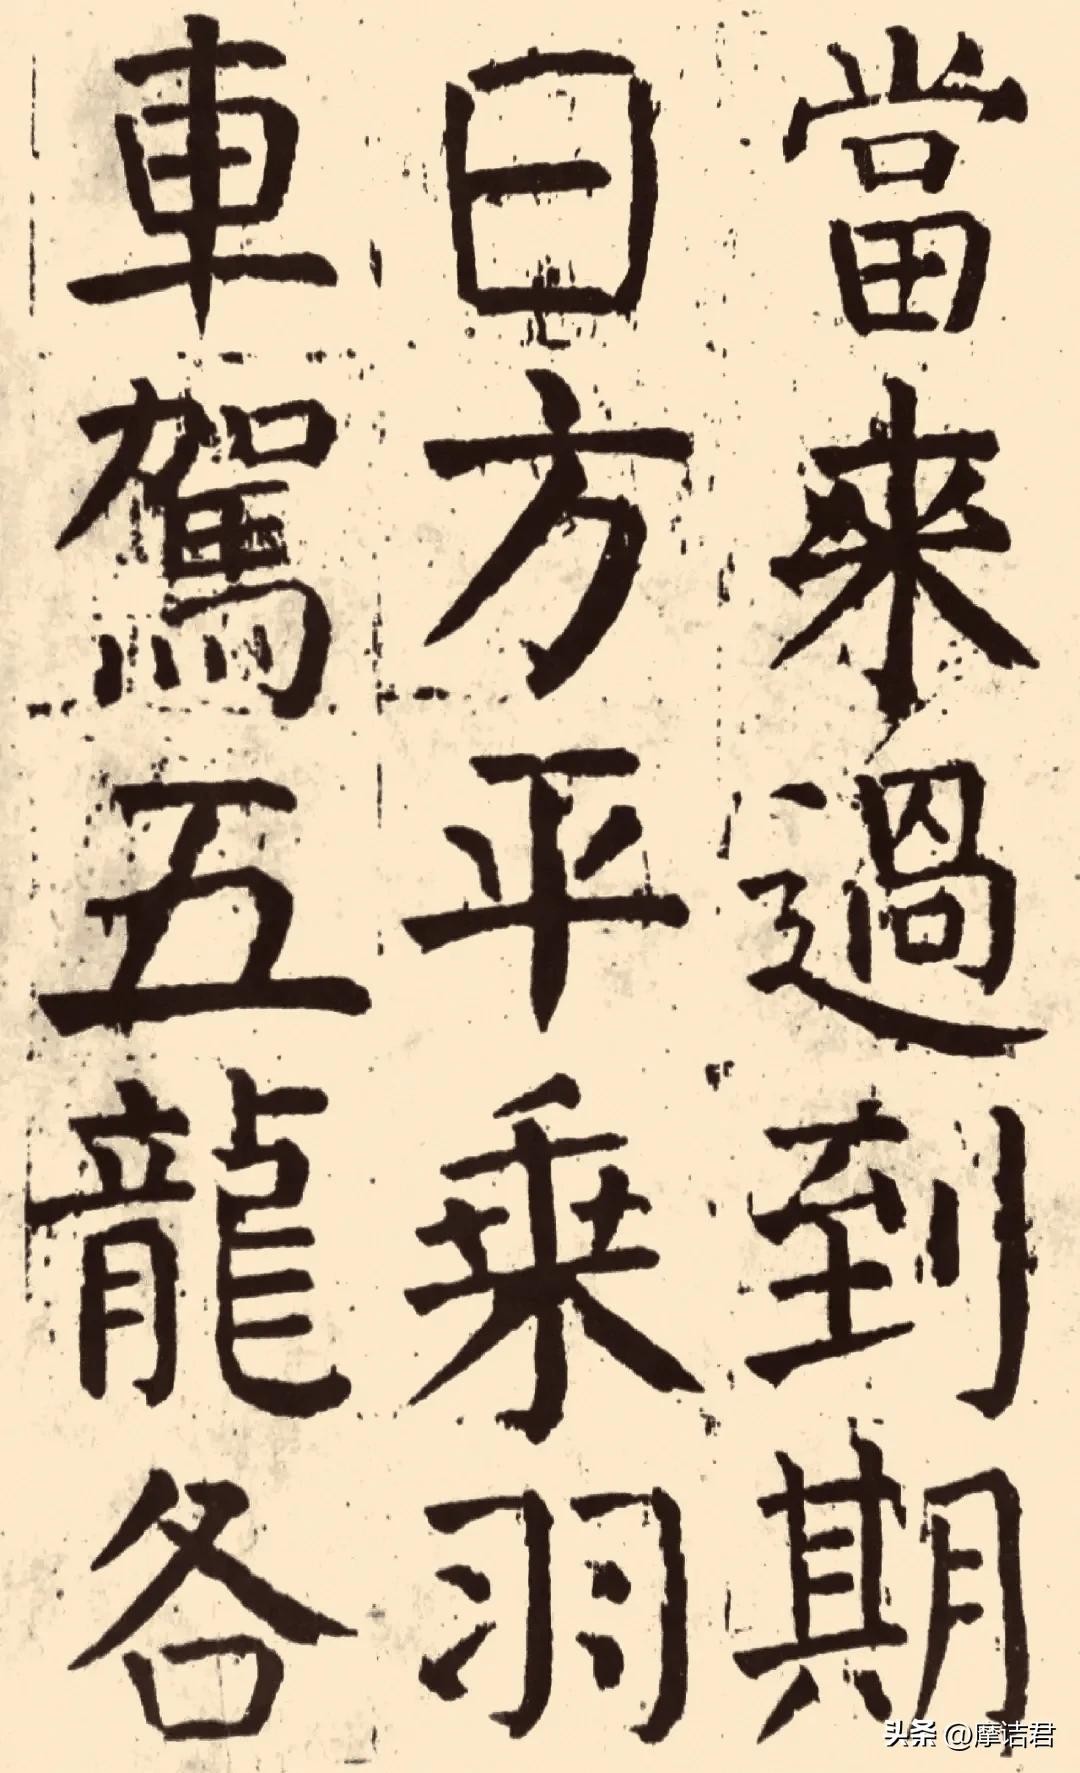 當來過到期
日方平乗羽
車駕五龍各
头条 @摩诘君